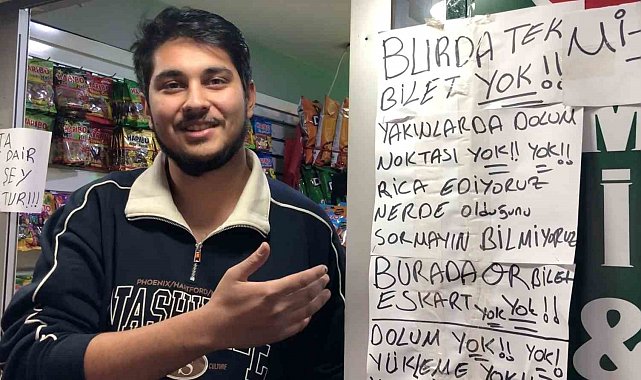 BURDA TEK
BİLET YOK!!
YAKINLARDA DOLUM
NOKTASI YOK!! YOK!!
RİCA EDİYORUZ
NERDE OLDUĞUNU
SORMAYIN BİLMİYORUZ
BURADA OR BİLET
ESKART YOK YOK!!
DOLUM YOK!! YOK!
YÜKLEME YOK!
Mİ-
TA
DAİR
ŞEY
TUR!!!
M
İ
&
PHOENIX/HARTFORD/
NASHVILLE
CULTURE
HARIBO